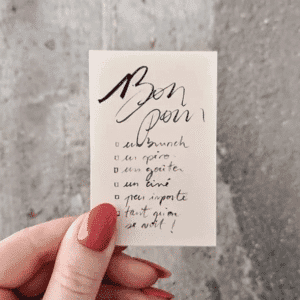 Bon
pour
□ un brunch
□ un apéro
□ un goûter
□ un ciné
□ peu importe
□ tant qu'on
se voit !